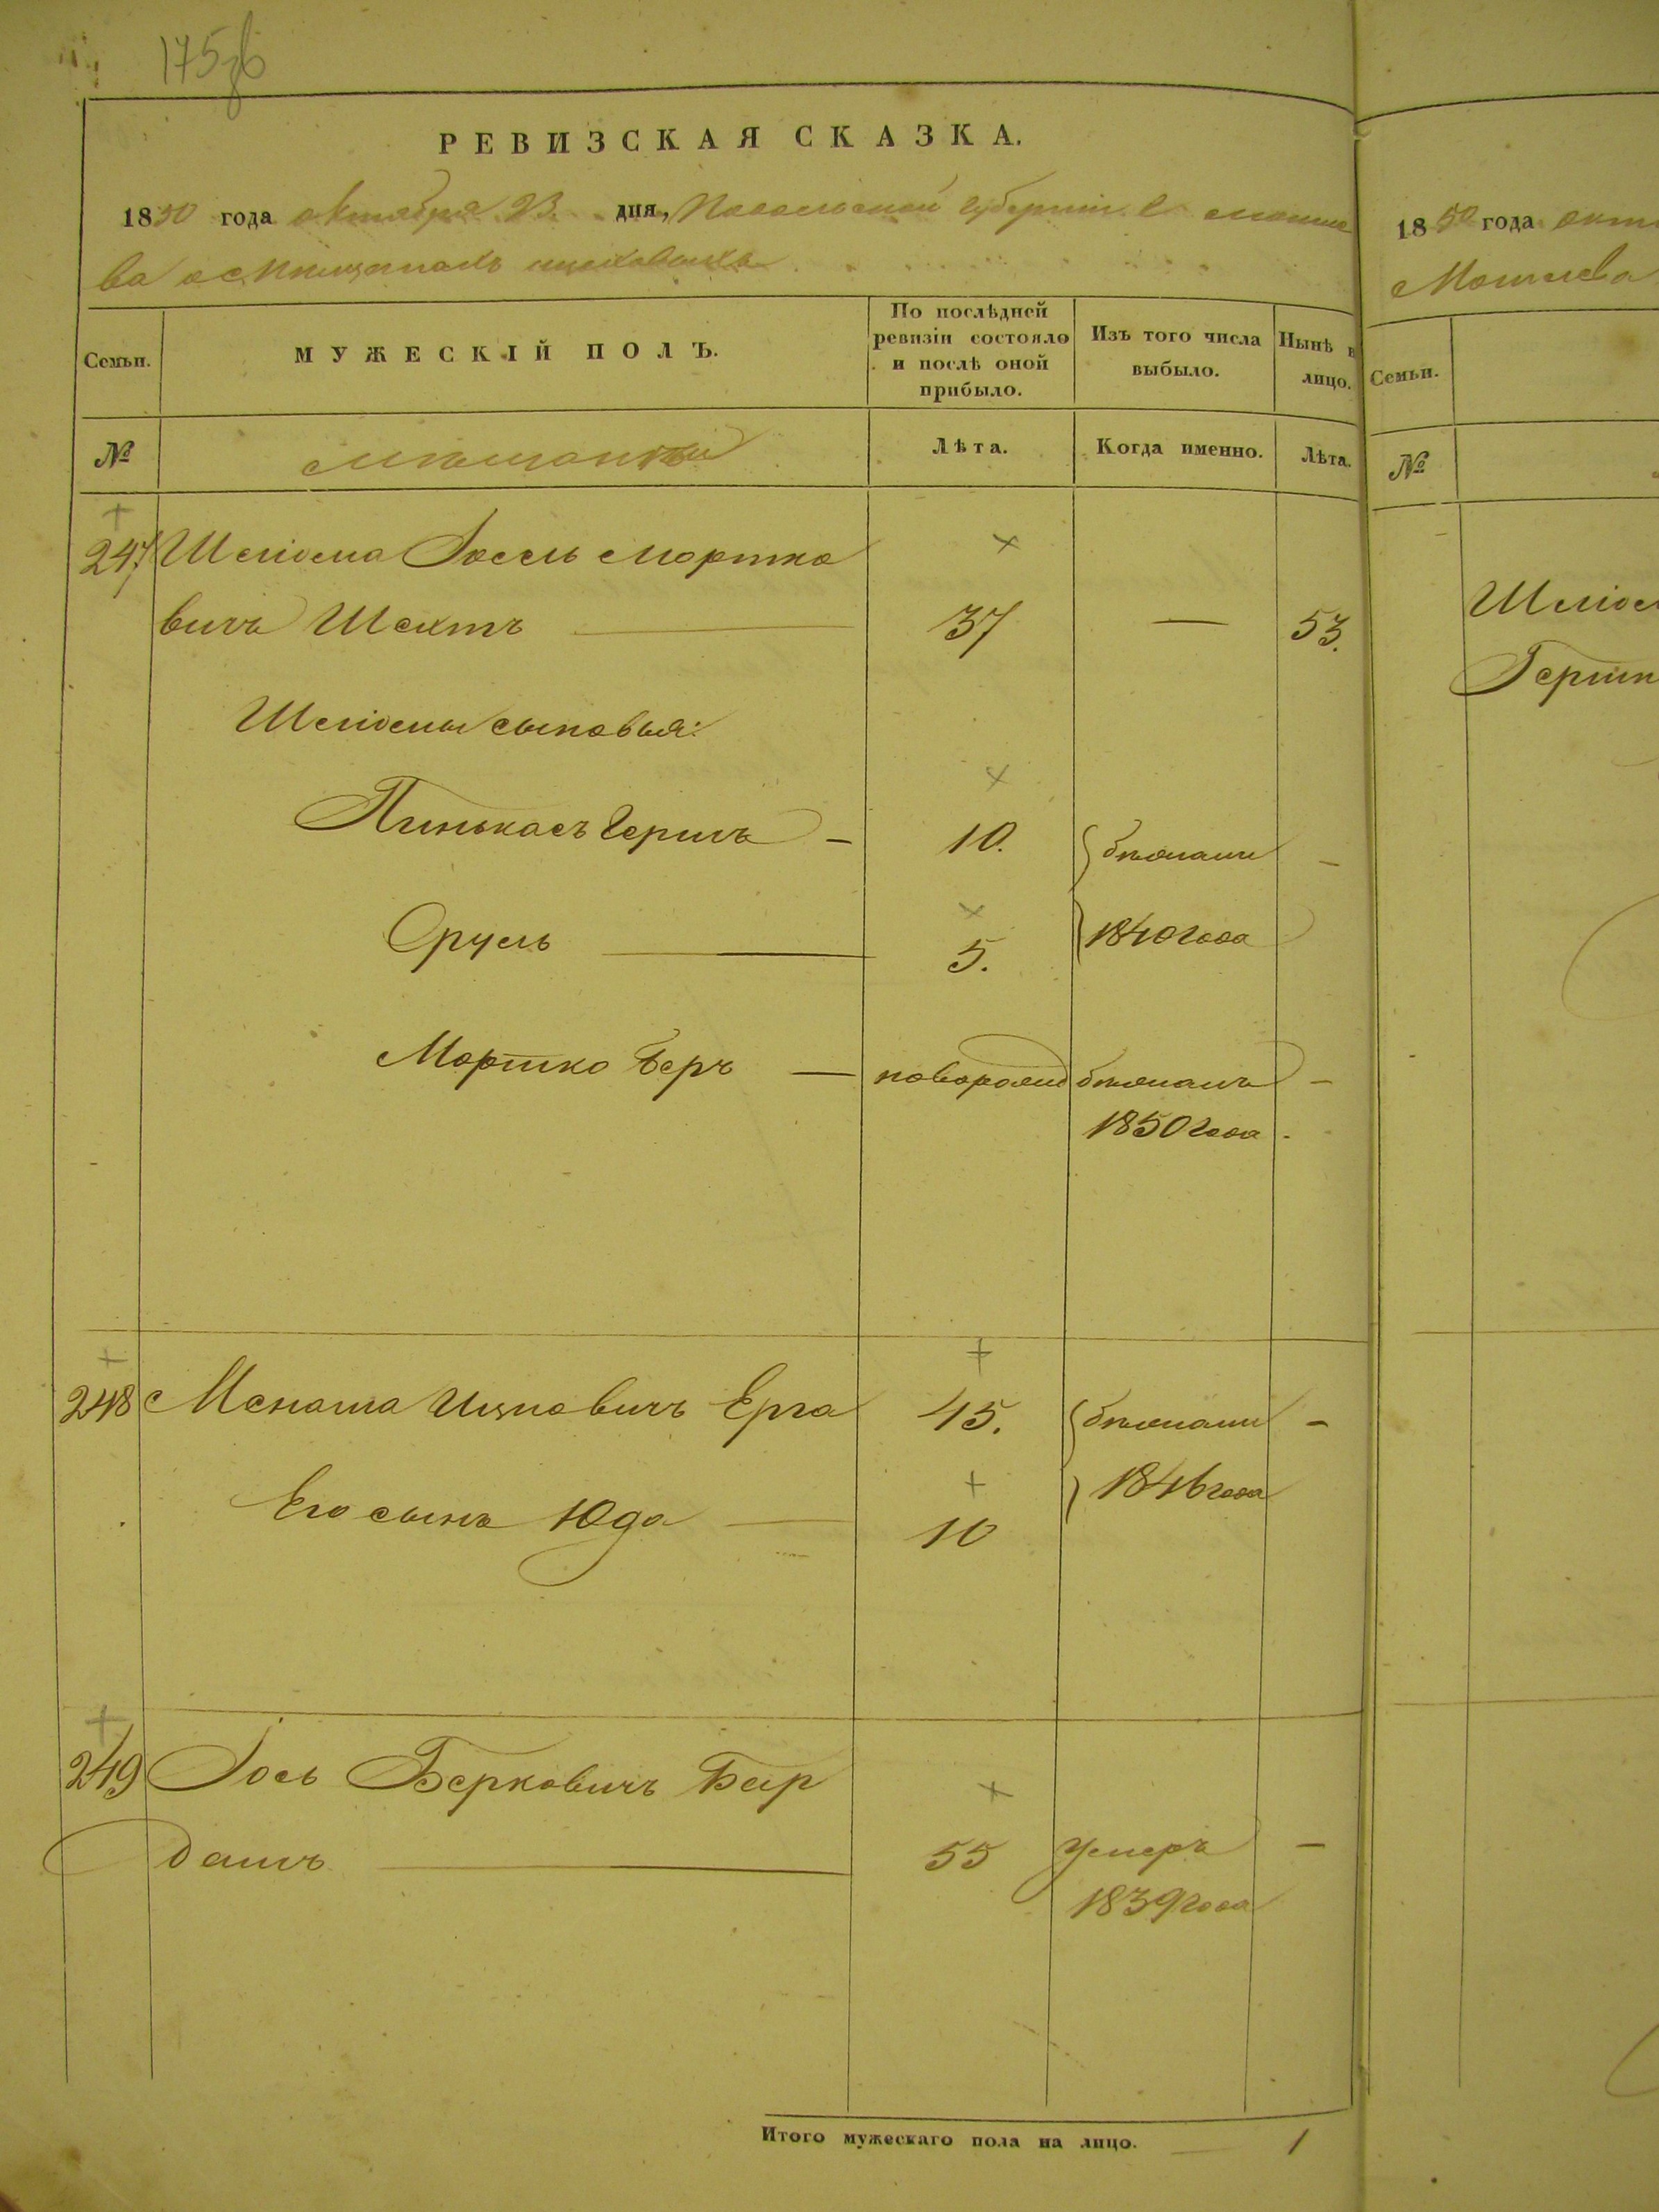 175об
РЕВИЗСКАЯ СКАЗКА.
1850 года октября 23 дня, Подольской губернии г. Могиле
ва о мещанах
Семьи.
МУЖЕСКІЙ ПОЛЪ.
По послѣдней ревизіи состояло и послѣ оной прибыло.
Изъ того числа выбыло.
Нынѣ в лицо.
№
Лѣта.
Когда именно.
Лѣта.
247 Шліома Іосель Мортко
вичъ Шехтъ 37 — 53.
Шліомы сыновья:
Пинькасъ Гершъ — 10. бѣжали —
Сруль 5. 1840 года
Мортко Беръ — новорожд бѣжалъ —
1850 года
248 Менаша Ицковичъ Ерга 45. бѣжали —
Его сынъ Юда 10 1846 года
249 Іось Берковичъ Бар
дашъ 55 умеръ —
1839 года
Итого мужескаго пола на лицо. — 1
1850 года окт
Могилева
Семьи.
№
Шліом